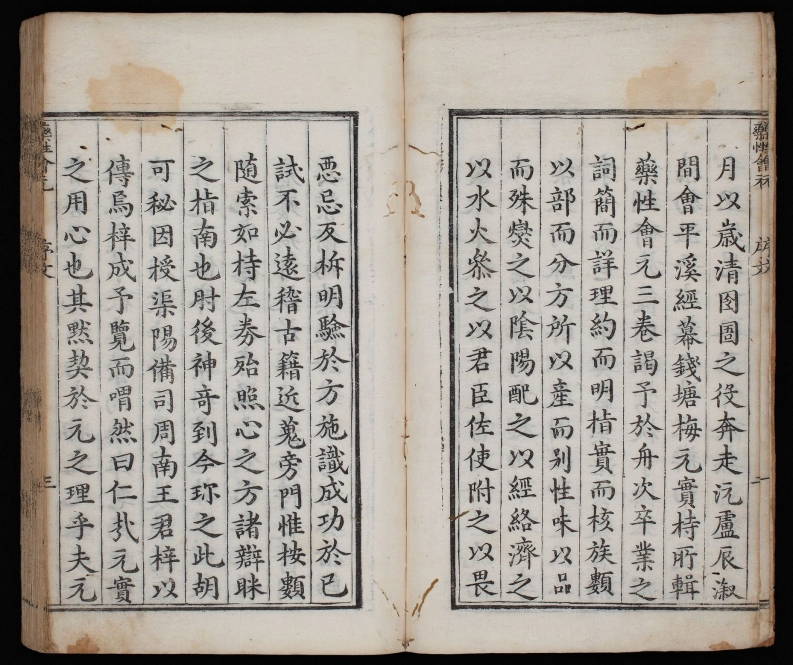 月以歳清囹圄之役奔走沅盧辰溆
間會平溪經幕錢塘梅元實持所輯
藥性會元三卷謁予於舟次卒業之
詞簡而詳理約而明指實而核族類
以部而分方所以産而别性味以品
而殊爕之以陰陽配之以經絡濟之
以水火叅之以君臣佐使附之以畏
惡忌反析明驗於方施識成功於已
試不必遠稽古籍近蒐旁門惟按類
随索如持左券殆照心之方諸辯眯
之指南也肘後神奇到今珎之此胡
可秘因授渠陽備司周南王君梓以
傳焉梓成予覽而喟然曰仁㢤元實
之用心也其黙契於元之理乎夫元
藥性會元
序文
三